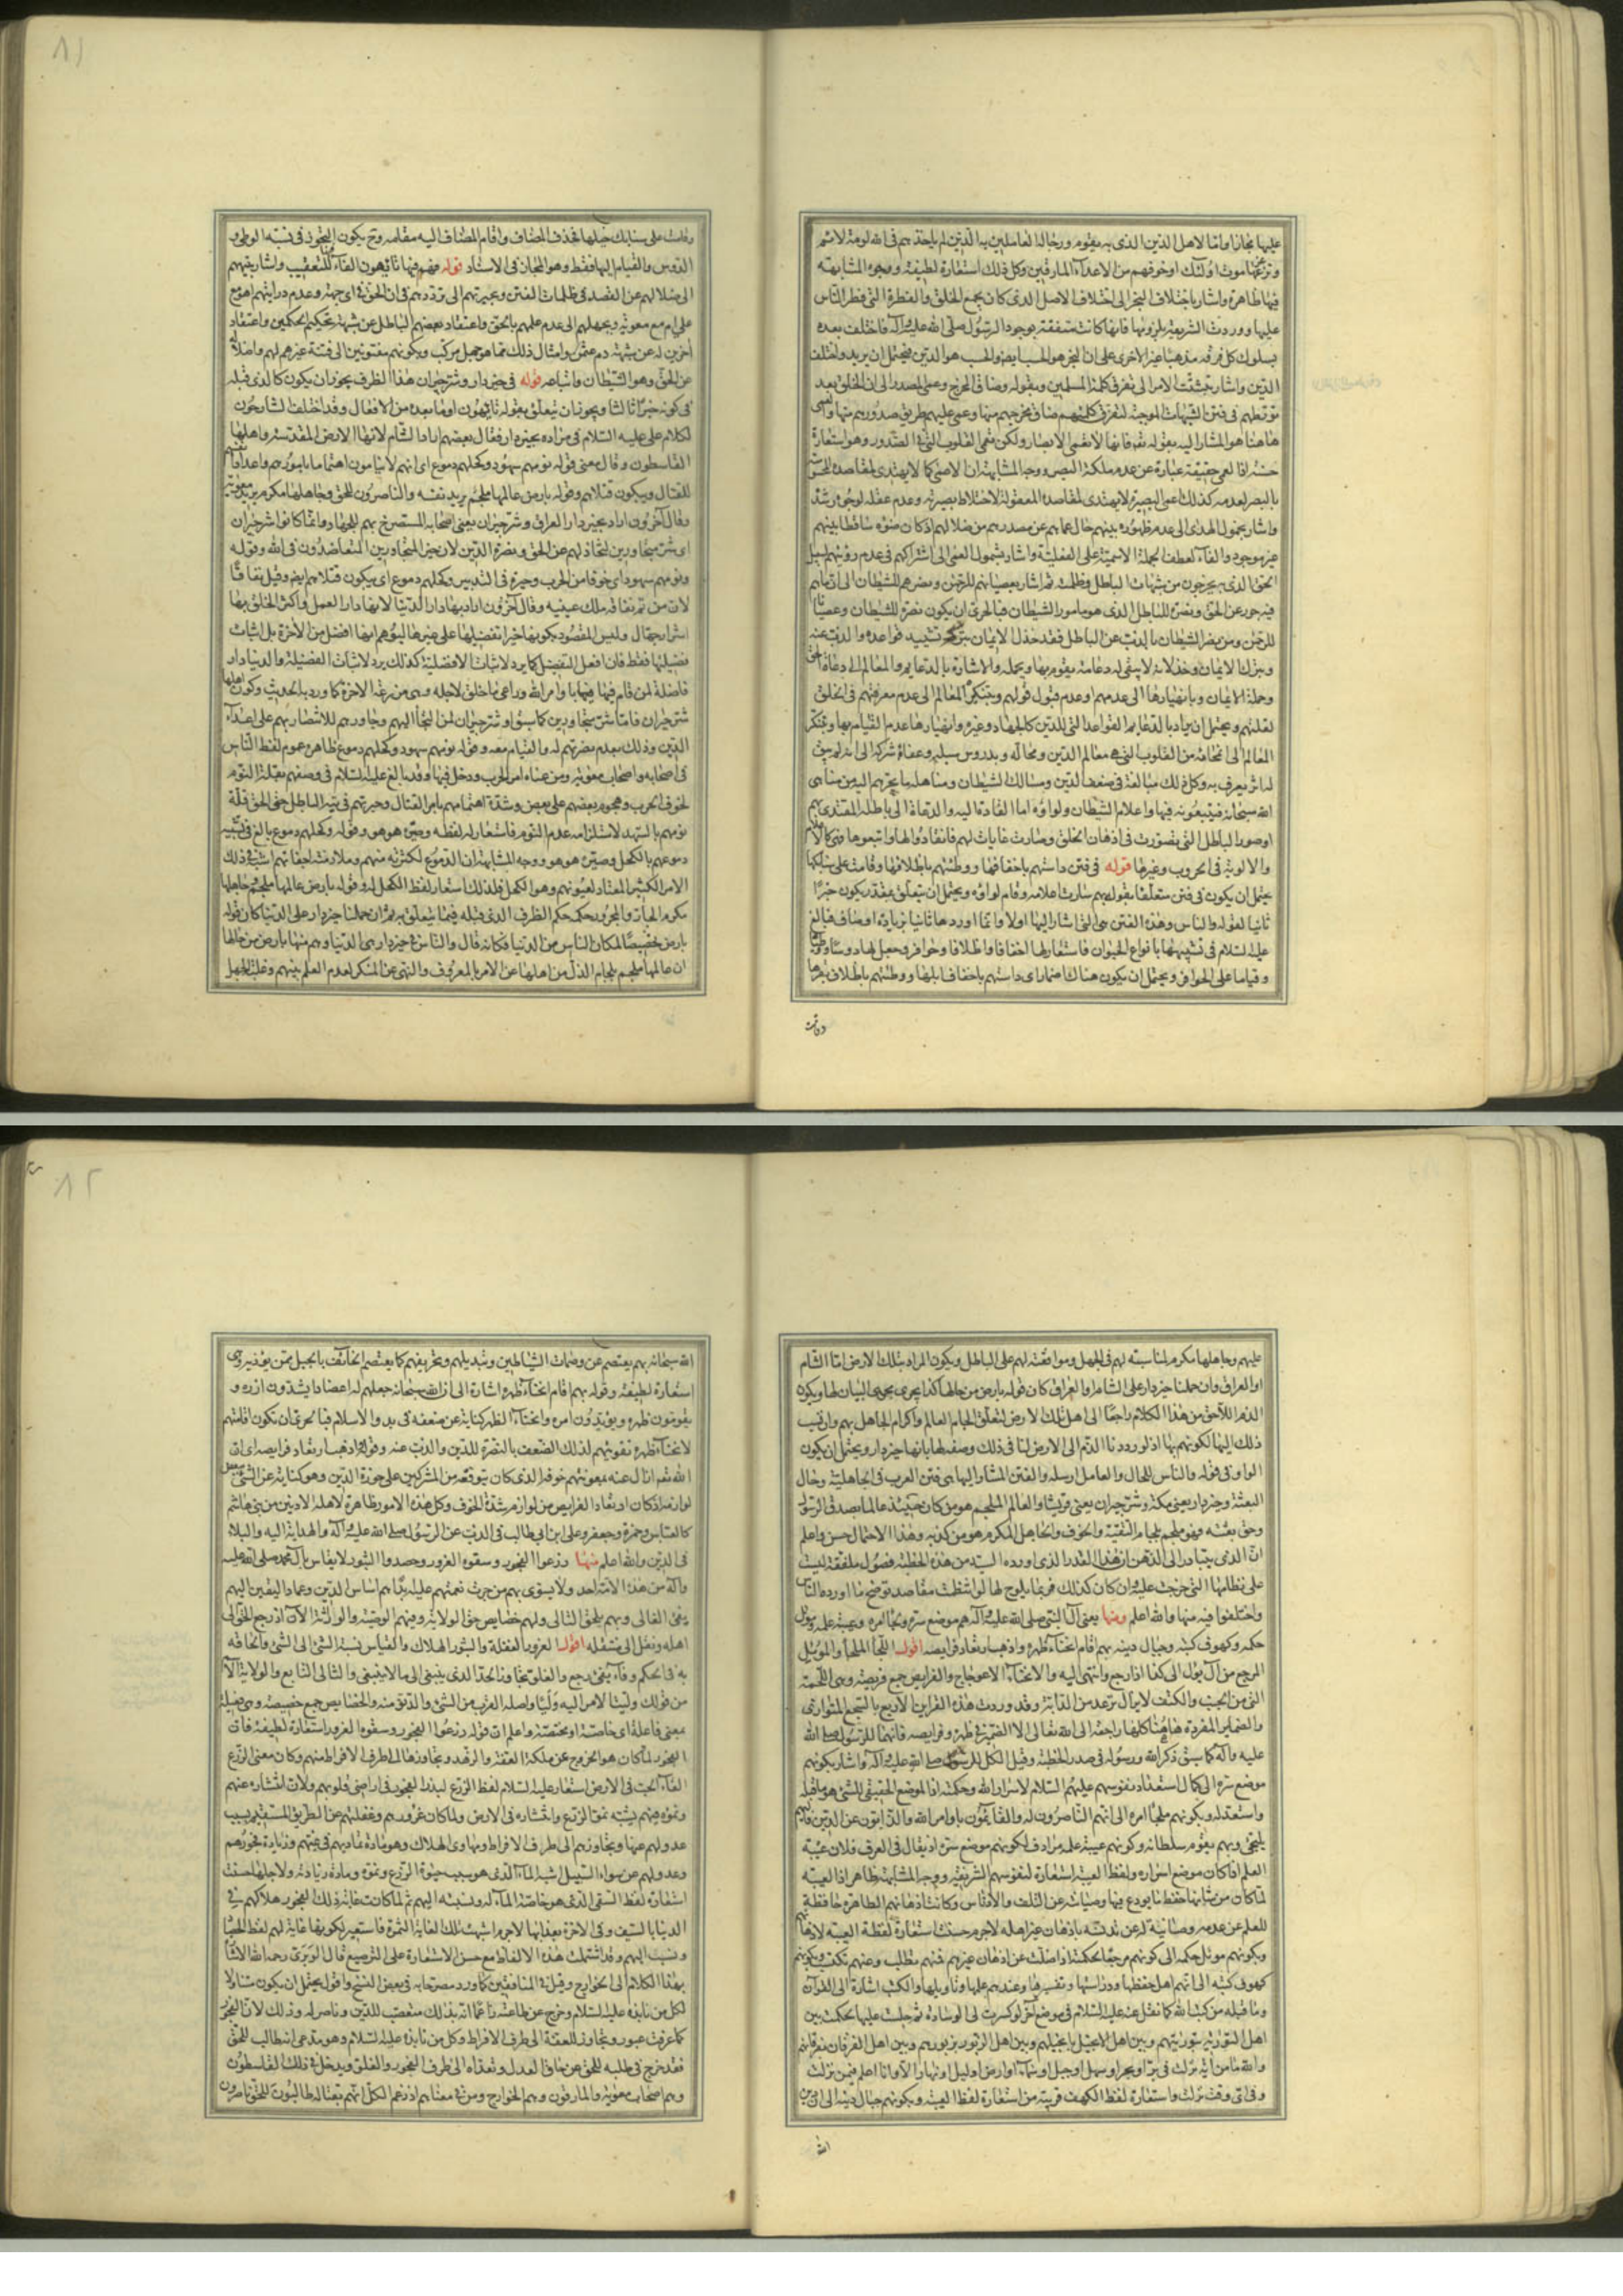 عليها مجازا واما لاهل الدين الذى به يقوم ورجاله العاملين به الذين لم ياخذهم فى الله لومة لائم
موت اولئك او خوفهم من الاعداء المارقين وكل ذلك استعارة لطيفة ووجوه المشابهة
فيها ظاهرة واشار باختلاف النجر الى اختلاف الاصل الذى كان يجمع الخلق والفطرة التى فطر الناس
عليها ووردت الشريعة بلزومها فانها كانت متفقة بوجود الرسول صلى الله عليه وآله فاختلف بعده
بسلوك كل فرقة مذهبا غير الاخرى على ان النجر هو الحسب ايضا والحسب هو الدين فيحتمل ان يريد واختلف
الدين واشار بتشتت الامر الى تفرق كلمة المسلمين وبقوله وضاق المخرج وعمى المصدر الى ان الخلق بعد
تورطهم فى فتن الشبهات الموجبة لتفرق كلمتهم ضاق مخرجهم منها وعمى عليهم طريق صدورهم منها والعمى
هاهنا هو المشار اليه بقوله تع فانها لا تعمى الابصار ولكن تعمى القلوب التى فى الصدور وهو استعارة
حسنة اذا العمى حقيقة عبارة عن عدم ملكة البصر ووجه المشابهة ان الاعمى كما لا يهتدى لمقاصده المحسوسة
بالبصر لعدمه كذلك اعمى البصيرة لا يهتدى لمقاصده المعقولة لاختلاط بصيرته وعدم عقله لوجوه رشده
واشار بخمول الهدى الى عدم ظهوره بينهم حال عماهم عن مصدرهم من ضلالهم اذ كان ضوءه ساقطا بينهم
غير موجود والفاء لعطف الجملة الاسمية على الفعلية واشار بشمول العمى الى اشتراكهم فى عدم رؤيتهم لسبيل
الحق الذى به يخرجون من شبهات الباطل وظلمته ثم اشار بعصيانهم للرحمن ونصرهم للشيطان الى انهم
فى جور عن الحق ونصرة للباطل الذى هو مامور الشيطان فبالحرى ان يكون نصرة للشيطان وعصيانا
للرحمن ومن نصر الشيطان بالذب عن الباطل فقد خذل الايمان بترك تشييد قواعده والذب عنه
وبترك الايمان وخذلانه لا يبقى له دعامة يقوم بها ويحمله والاشارة بالدعايم والمعالم الى دعاة الحق
وحملة الايمان وبانهيارها الى عدمهم وعدم قبول قولهم وبتنكر المعالم الى عدم معرفتهم فى الخلق
لقلتهم ويحتمل ان يراد بالدعايم القواعد التى للدين كالجهاد وغيره وانهيارها عدم القيام بها وبتنكر
المعالم الى انمحائه من القلوب التى هى معالم الدين ومحاله وبدروس سبله وعفاء شركه الى انه لم يبق
له اثر يعرف به وكل ذلك مبالغة فى ضعف الدين ومسالك الشيطان ومناهله ما يجرهم اليه من مناهى
الله سبحانه فيتبعونه فيها واعلام الشيطان ولواؤه اما القادة اليه والدعاة الى باطله المقتدى بهم
او صور الباطل التى تصورت فى اذهان الخلق وصارت غايات لهم فانقادوا لها واتبعوها فهى كالاعلام
والالوية فى الحروب وغيرها قوله فى فتن داستهم باخفافها ووطئتهم باظلافها وقامت على سنابكها
يحتمل ان يكون فى فتن متعلقا بقوله بهم سارت اعلامه وقام لواؤه ويحتمل ان يتعلق بمقدر يكون خبرا
ثانيا لقوله والناس وهذه الفتن هى التى اشار اليها اولا وانما اوردها ثانيا بزيادة اوصاف فبالغ
عليه السلام فى تشبيهها بانواع الحيوان فاستعار لها اخفافا واظلافا وحوافر وجعل لها دوسا ووطئا
وقياما على الحوافر ويحتمل ان يكون هناك اضمار اى داستهم باخفاف ابلها ووطئتهم باظلاف بقرها
وقامت
٨١
وقامت على سنابك خيلها فحذف المضاف واقام المضاف اليه مقامه وح يكون التجوز فى نسبة الوطى و
الدوس والقيام اليها فقط وهو المجاز فى الاسناد قوله فهم فيها تائهون الفاء للتعقيب واشار بتيههم
الى ضلالهم عن القصد فى ظلمات الفتن وبحيرتهم الى ترددهم فى ان الحق فى اى جهة وعدم درايتهم اهو مع
على ام مع معوية وبجهلهم الى عدم علمهم بالحق واعتقاد بعضهم الباطل عن شبهة تحكيم الحكمين واعتقاد
آخرين له عن شبهة دم عثمن وامثال ذلك مما هو جهل مركب وبكونهم مفتونين الى فتنة غيرهم لهم واضلاله
عن الحق وهو الشيطان واتباعه قوله فى خير دار وشر جيران هذا الظرف يجوز ان يكون كالذى قبله
فى كونه خبرا ثالثا ويجوز ان يتعلق بقوله تائهون او ما بعده من الافعال وقد اختلف الشارحون
لكلام على عليه السلام فى مراده بخير دار فقال بعضهم اراد الشام لانها الارض المقدسة واهلها
القاسطون وقال معنى قوله نومهم سهود وكحلهم دموع اى انهم لا ينامون اهتماما بامورهم واعداد انفسهم
للقتال ويبكون قتلاهم وقوله بارض عالمها ملجم يريد نفسه والناصرون للحق وجاهلها مكرم يريد معوية
وقال آخرون اراد بخير دار العراق وشر جيران يعنى اصحابه المستصرخ بهم للجهاد وانما كانوا شر جيران
اى شر متجاورين لتخاذلهم عن الحق ونصرة الدين لان خير المتجاورين المتعاضدون فى الله وقوله
ونومهم سهود اى خوفا من الحرب وحيرة فى التدبير وكحلهم دموع اى يبكون قتلاهم ايضا وقيل نفاقا
لان من تم نفاقه ملك عينيه وقال آخرون اراد بها دار الدنيا لانها دار العمل واكثر الخلق بها
اشرار جهال وليس المقصود بكونها خيرا تفضيلها على غيرها ليوهم انها افضل من الآخرة بل اثبات
فضيلتها فقط فان افعل التفضيل كما يرد لاثبات الافضلية كذلك يرد لاثبات الفضيلة والدنيا دار
فاضلة لمن قام فيها باوامر الله وراعى ما خلق لاجله وهى مزرعة الآخرة كما ورد به الحديث وكون اهلها
شر جيران فاما شر متجاورين كما سبق او شر جيران لمن التجأ اليهم وجاورهم للانتصار بهم على اعداء
الدين وذلك بعدم نصرتهم له والقيام معه وقوله نومهم سهود وكحلهم دموع ظاهره عموم لفظ الناس
فى اصحابه واصحاب معوية ومن عناه امر الحرب ودخل فيها وقد بالغ عليه السلام فى وصفهم بقلة النوم
لخوف الحرب وهجوم بعضهم على بعض وشدة اهتمامهم بامر القتال وحيرتهم فى تيه الباطل حتى الحق قلة
نومهم بالسهد لاستلزامه عدم النوم فاستعار له لفظه وصيره هو هو وقوله وكحلهم دموع بالغ فى تشبيه
دموعهم بالكحل وصيره هو هو ووجه المشابهة ان الدموع لكثرتها منهم وملازمته اجفانهم اشبه فى ذلك
الامر الكثير المعتاد لعيونهم وهو الكحل فلذلك استعار لفظ الكحل له وقوله بارض عالمها ملجم جاهلها
مكرم الجار والمجرور حكمه حكم الظرف الذى قبله فيما يتعلق به ثم ان حملنا خير دار على الدنيا كان قوله
بارض تخصيصا لمكان الناس من الدنيا فكانه قال والناس فى خير دار هى الدنيا وهم منها بارض من حالها
ان عالمها ملجم بلجام الذل من اهلها عن الامر بالمعروف والنهى عن المنكر لعدم العلم بينهم وغلبة الجهل
عليهم وجاهلها مكرم لمناسبته لهم فى الجهل وموافقته لهم على الباطل ويكون المراد بتلك الارض اما الشام
او العراق وان حملنا خير دار على الشام او العراق كان قوله بارض من حالها كذا يجرى مجرى البيان لها ويكون
الذم اللاحق من هذا الكلام راجعا الى اهل تلك الارض لتعلق الجام العالم واكرام الجاهل بهم وان نسب
ذلك اليها لكونهم بها اذ لو رددنا الذم الى الارض لنافى ذلك وصفه لها بانها خير دار ويحتمل ان يكون
الواو فى قوله والناس للحال والعامل ارسله والفتن المشار اليها هى فتن العرب فى الجاهلية وحال
البعثة وخير دار يعنى مكة وشر جيران يعنى قريشا والعالم الملجم هو من كان حينئذ عالما بصدق الرسول
وحق بعثته فهو ملجم بلجام التقية والخوف والجاهل المكرم هو من كذبه وهذا الاحتمال حسن واعلم
ان الذى يتبادر الى الذهن ان هذا القدر الذى اورده السيد من هذه الخطبة فصول ملفقة ليست
على نظامها التى خرجت عليه وان كان كذلك فربما يلوح لها لو انتظمت مقاصد توضح ما اورده الناس
واختلفوا فيه منها والله اعلم ومنها يعنى آل النبى صلى الله عليه وآله هم موضع سره ولجأ امره وعيبة علمه وموئل
حكمه وكهوف كتبه وجبال دينه بهم اقام انحناء ظهره واذهب ارتعاد فرايصه اقول اللجأ الملجأ والموئل
المرجع من آل يؤل الى كذا اذا رجع وانتهى اليه والانحناء الاعوجاج والفرايص جمع فريصة وهى اللحمة
التى من الجنب والكتف لا يزال ترعد من الدابة وقد وردت هذه القراين الاربع بالسجع المتوازى
والضماير المفردة هاهنا كلها راجعة الى الله تعالى الا الضمير فى ظهره وفرايصه فانهما للرسول صلى الله
عليه وآله كما سبق ذكر الله ورسوله فى صدر الخطبة وقيل الكل للرسول صلى الله عليه وآله واشار بكونهم
موضع سره الى كمال استعداد نفوسهم عليهم السلام لاسرار الله وحكمته اذا الموضع الحقيقى للشئ هو ما قبله
واستعد له وبكونهم ملجأ امره الى انهم الناصرون له والقائمون باوامر الله والذابون عن الدين فاليهم
يلتجى وبهم يقوم سلطانه وكونهم عيبة علمه مرادف لكونهم موضع سره اذ يقال فى العرف فلان عيبة
العلم اذا كان موضع اسراره ولفظ العيبة استعارة لنفوسهم الشريفة ووجه المشابهة ظاهر اذا العيبة
لما كان من شانها حفظ ما يودع فيها وصيانته عن التلف والادناس وكانت اذهانهم الطاهرة حافظة
للعلم عن عدمه وصائنة له عن تدنسه باذهان غير اهله لاجرم حسنت استعارة لفظة العيبة لاذهانهم
وبكونهم موئل حكمه الى كونهم مرجعا لحكمته اذا ضلت عن اذهان غيرهم فمنهم تطلب وعنهم تكتسب وبكونهم
كهوف كتبه الى انهم اهل حفظها ودراستها وتفسيرها وعندهم علمها وتاويلها والكتب اشارة الى القرآن
وما قبله من كتب الله كما نقل عنه عليه السلام فى موضع آخر لو كسرت لى الوسادة ثم جلست عليها لحكمت بين
اهل التورية بتوريتهم وبين اهل الانجيل بانجيلهم وبين اهل الزبور بزبورهم وبين اهل الفرقان بفرقانهم
والله ما من آية نزلت فى بر او بحر او سهل او جبل او سماء او ارض او ليل او نهار الا وانا اعلم فيمن نزلت
وفى اى وقت نزلت واستعارة لفظ الكهف قريبة من استعارة لفظ العيبة وبكونهم جبال دينه الى ان دين
الله
٨٢
الله سبحانه بهم يعتصم عن وصمات الشياطين وتبديلهم وتحريفهم كما يعتصم الخائف بالجبل ممن يؤذيه وهى
استعارة لطيفة وقوله بهم اقام انحناء ظهره اشارة الى ان الله سبحانه جعلهم له اعضادا يشدون ازره و
يقومون ظهره ويؤيدون امره وانحناء الظهر كناية عن ضعفه فى بدو الاسلام فبالحرى ان تكون اقامتهم
لانحناء ظهره تقويتهم لذلك الضعف بالنصرة للدين والذب عنه وقوله واذهب ارتعاد فرايصه اى ان
الله تع ازال عنه بمعونتهم خوفه الذى كان يتوقعه من المشركين على حوزة الدين وهو كناية عن الشئ ببعض
لوازمه اذ كان ارتعاد الفرايص من لوازم شدة الخوف وكل هذه الامور ظاهرة لاهله الادنين من بنى هاشم
كالعباس وحمزة وجعفر وعلى بن ابى طالب فى الذب عن الرسول صلى الله عليه وآله والهداية اليه والبلاء
فى الدين والله اعلم منها زرعوا الفجور وسقوه الغرور وحصدوا الثبور لا يقاس بآل محمد صلى الله عليه
وآله من هذه الامة احد ولا يسوى بهم من جرت نعمتهم عليه ابدا هم اساس الدين وعماد اليقين اليهم
يفئ الغالى وبهم يلحق التالى ولهم خصايص حق الولاية وفيهم الوصية والوراثة الآن اذ رجع الحق الى
اهله ونقل الى منتقله اقول الغرور الغفلة والثبور الهلاك والقياس نسبة الشئ الى الشئ والحاقه
به فى الحكم وفاء يفئ رجع والغلو تجاوز الحد الذى ينبغى الى ما لا ينبغى والتالى التابع والولاية الاسم
من قولك وليت الامر اليه وليا واصله القرب من الشئ والدنو منه والخصايص جمع خصيصة وهى فعيلة
بمعنى فاعلة اى خاصة او مختصة واعلم ان قوله زرعوا الفجور وسقوه الغرور استعارة لطيفة فان
الفجور لما كان هو الخروج عن ملكة العفة والزهد وتجاوزها الى طرف الافراط منهم وكان معنى الزرع
القاء الحب فى الارض استعار عليه السلام لفظ الزرع لبذر الفجور فى اراضى قلوبهم ولان انتشاره عنهم
ونموه فيهم يشبه نمو الزرع وانتشاره فى الارض ولما كان غرورهم وغفلتهم عن الطريق المستقيم بسبب
عدولهم عنها وتجاوزهم الى طرف الافراط ومهاوى الهلاك وهو مادة تماديهم فى غيهم وزيادة فجورهم
وعدولهم عن سواء السبيل اشبه الماء الذى هو سبب حيوة الزرع ونموه ومادة زيادته ولاجلها حسنت
استعارة لفظ السقى الذى هو خاصة الماء له ونسبته اليهم ثم لما كانت غاية ذلك الفجور هلاكهم فى
الدنيا بالسيف وفى الآخرة بعذابها لاجرم اشبهت تلك الغاية الثمرة فاستعير لكونها غاية لهم لفظ الحصاد
ونسب اليهم وقد اشتملت هذه الالفاظ مع حسن الاستعارة على الترصيع قال الوبرى رحمه الله الاشارة
بهذا الكلام الى الخوارج وقيل فى المنافقين كما ورد مصرحا به فى بعض النسخ واقول يحتمل ان يكون متناولا
لكل من نابذه عليه السلام وخرج عن طاعته زاعما انه بذلك متعصب للدين وناصر له وذلك لان الفجور
كما عرفت عبور وتجاوز للعفة الى طرف الافراط وكل من نابذه عليه السلام وهو يدعى انه طالب للحق
فقد خرج فى طلبه للحق عن حاق العدل وتعداه الى طرف الفجور والغلو ويدخل فى ذلك القاسطون
وهم اصحاب معوية والمارقون وهم الخوارج ومن فى معناهم اذ زعم الكل انهم بقتاله طالبون للحق ناصرون